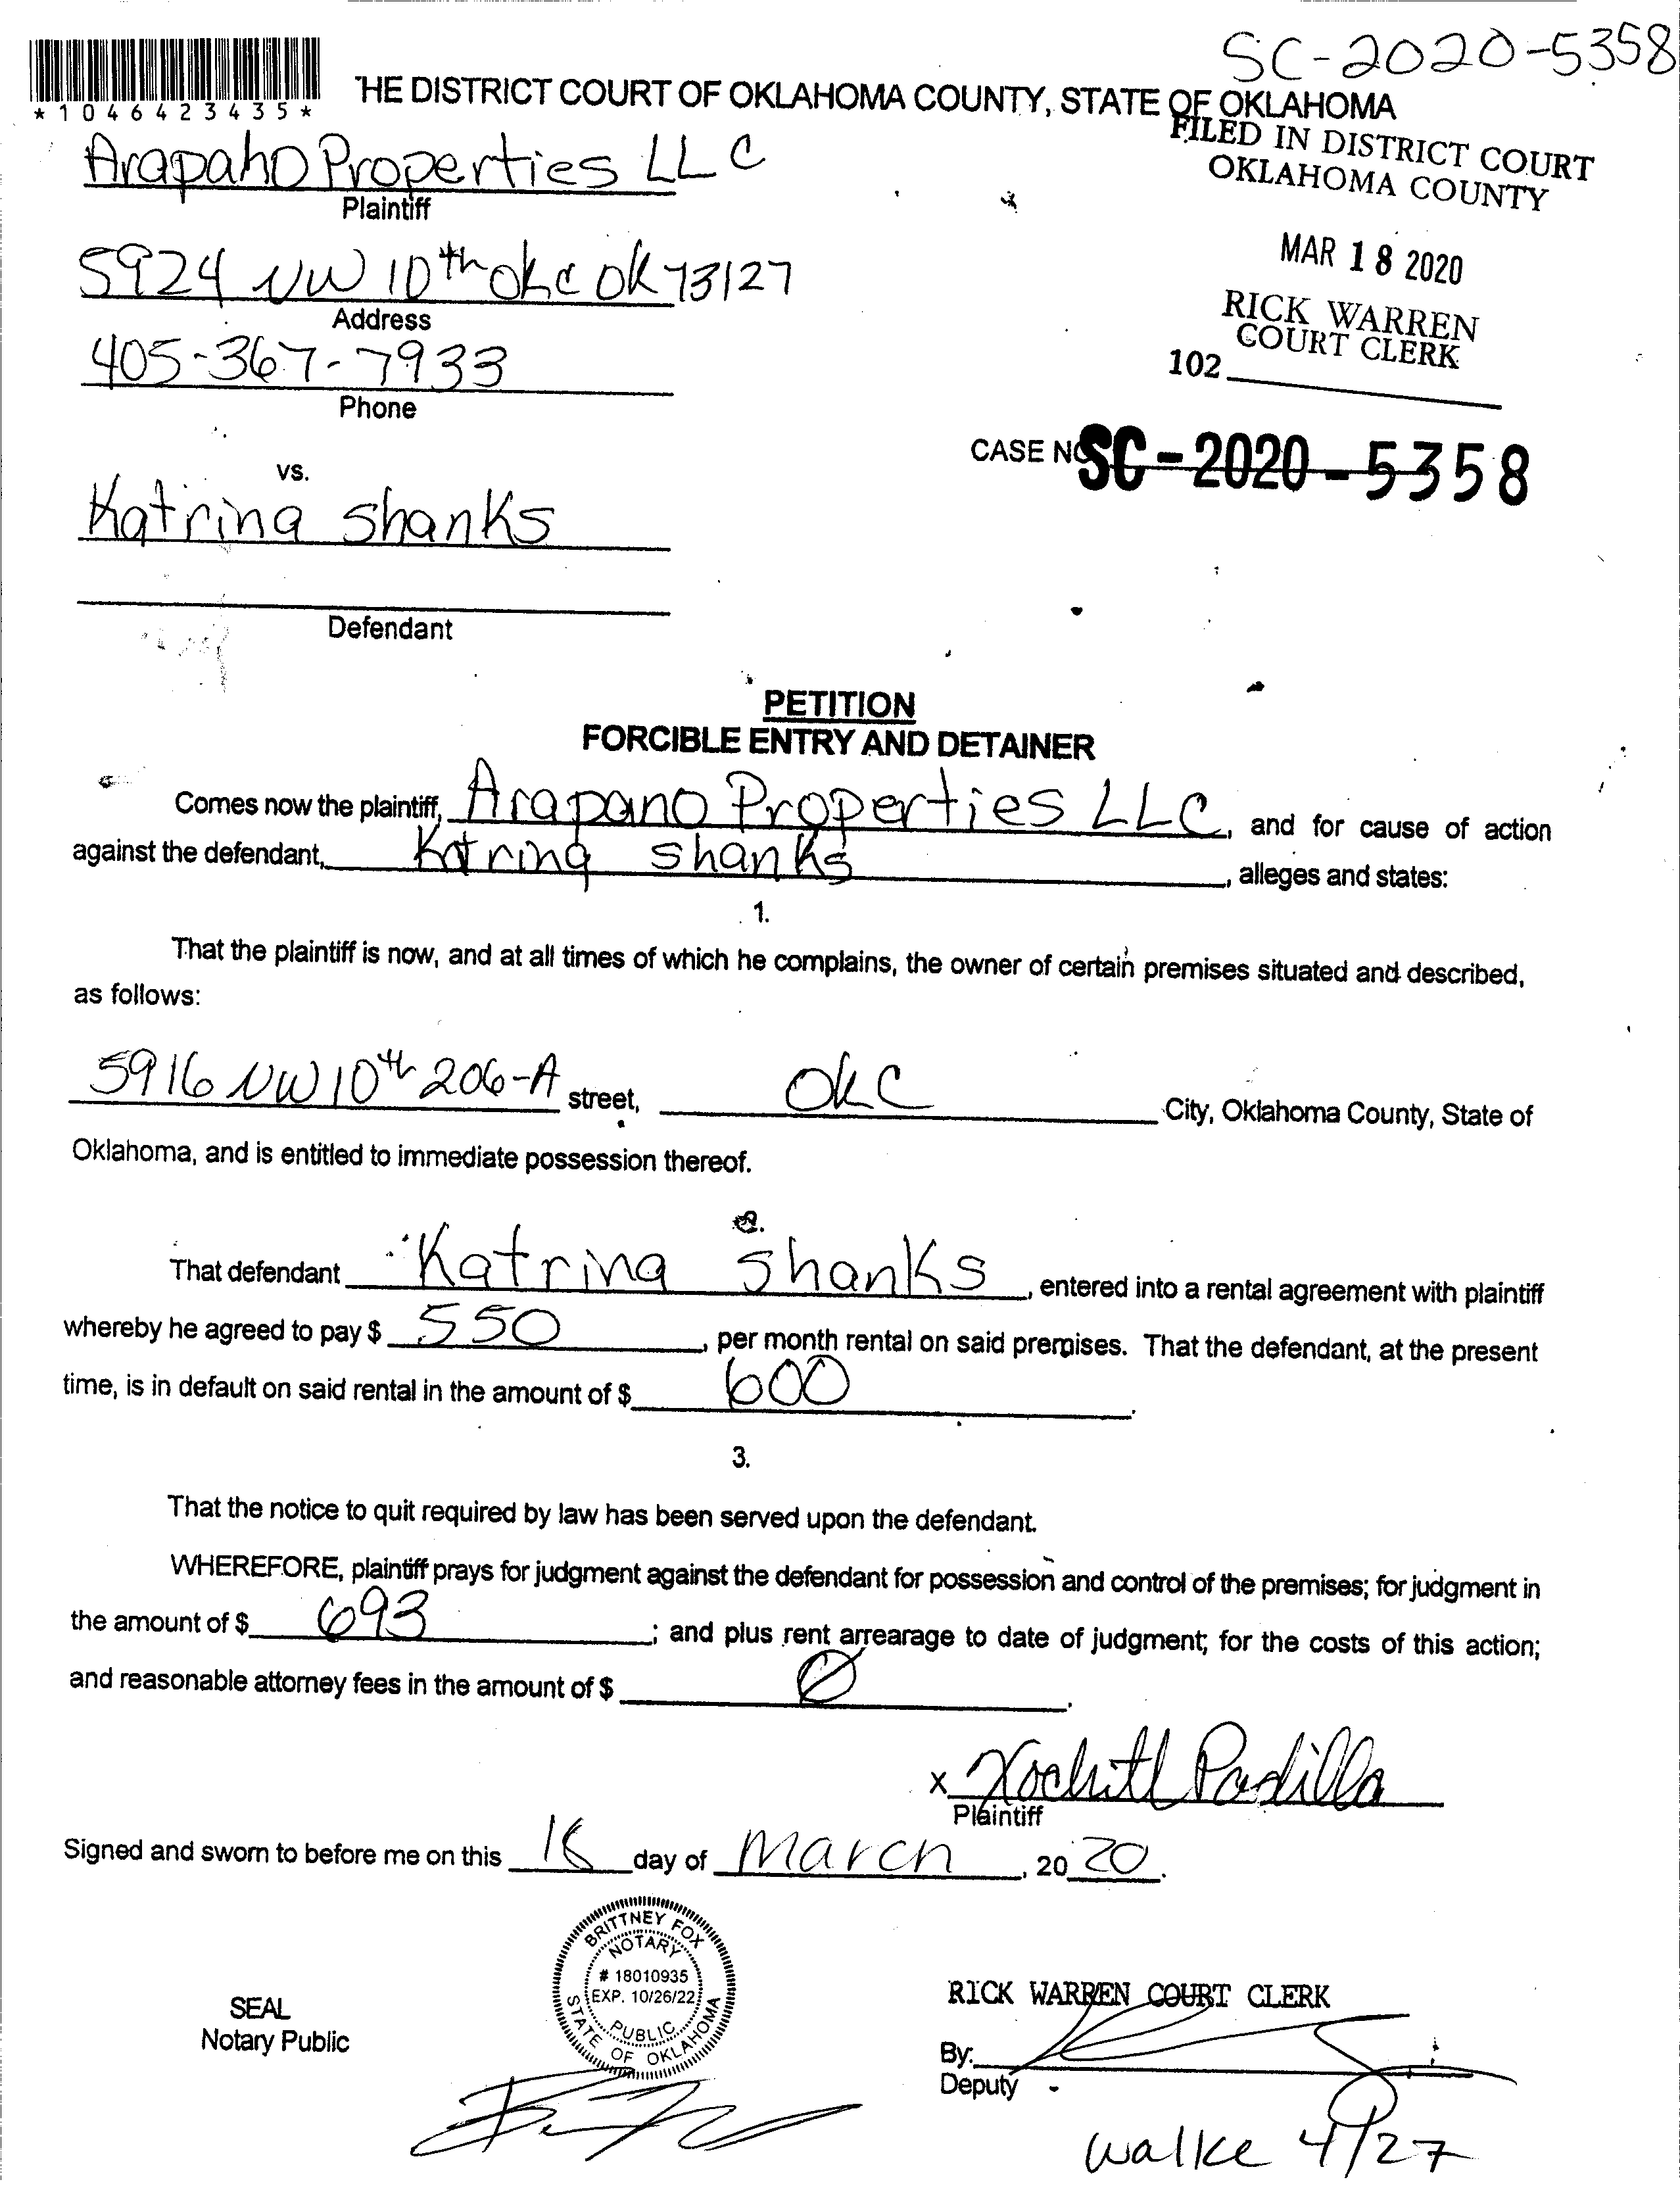 SC-2020-5358
*10464235435*
THE DISTRICT COURT OF OKLAHOMA COUNTY, STATE OF OKLAHOMA
FILED IN DISTRICT COURT
OKLAHOMA COUNTY
Arapaho Properties LLC
Plaintiff
MAR 18 2020
5924 NW 10th OKC OK 73127
Address
RICK WARREN
COURT CLERK
102
405-367-7933
Phone
CASE NO SC-2020-5358
vs.
Katrina Shanks
Defendant
PETITION
FORCIBLE ENTRY AND DETAINER
Comes now the plaintiff, Arapano Properties LLC, and for cause of action
against the defendant, Katrina shanks, alleges and states:
1.
That the plaintiff is now, and at all times of which he complains, the owner of certain premises situated and described,
as follows:
5916 NW 10th 206-A street, OKC City, Oklahoma County, State of
Oklahoma, and is entitled to immediate possession thereof.
2.
That defendant Katrina Shanks, entered into a rental agreement with plaintiff
whereby he agreed to pay $ 550, per month rental on said premises. That the defendant, at the present
time, is in default on said rental in the amount of $ 600.
3.
That the notice to quit required by law has been served upon the defendant.
WHEREFORE, plaintiff prays for judgment against the defendant for possession and control of the premises; for judgment in
the amount of $ 693; and plus rent arrearage to date of judgment; for the costs of this action;
and reasonable attorney fees in the amount of $ Ø.
x Xochitl Padilla
Plaintiff
Signed and sworn to before me on this 18 day of March, 2020.
BRITTNEY FOX
NOTARY
# 18010935
EXP. 10/26/22
PUBLIC
STATE OF OKLAHOMA
SEAL
Notary Public
RICK WARREN COURT CLERK
By:
Deputy
Walke 4/27